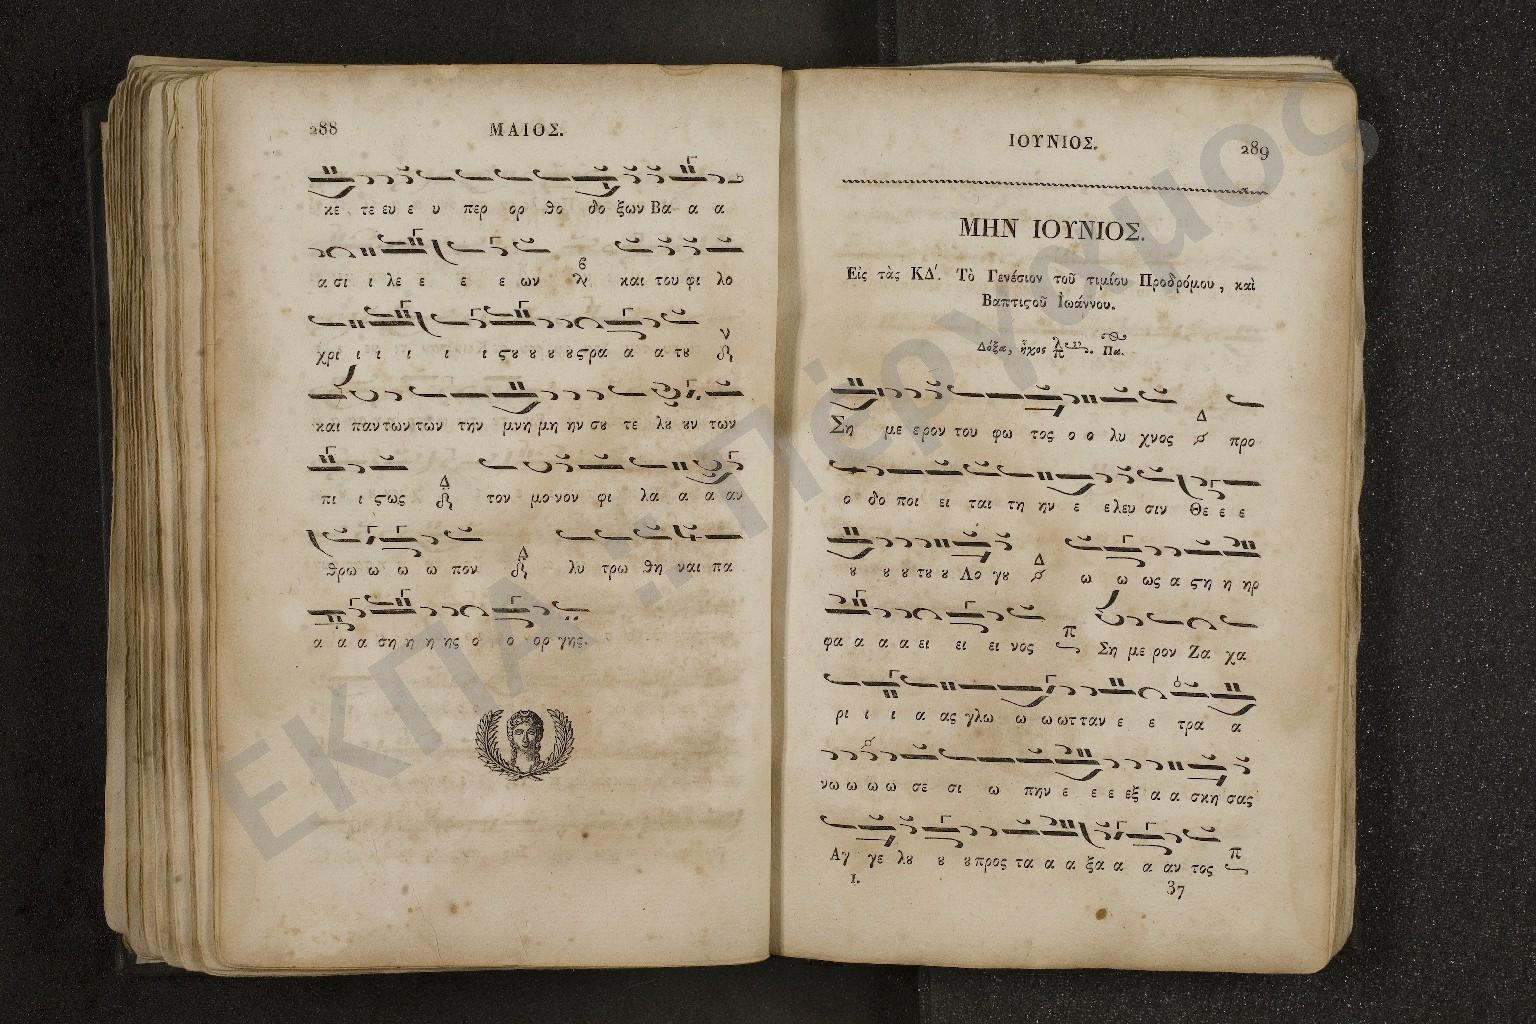 288
ΜΑΙΟΣ.
κε τε ευ ε υ περ ορ θο δο ξων Βα α α
α σι ι λε ε ε ε ων και του φι λο
χρι ι ι ι ι ι ςȣ ȣ ȣ ȣ ςρα α α τȣ
και παν των των την μνη μη ην σȣ τε λȣ ȣν των
πι ι ςως Δ τον μο νον φι λα α α αν
θρω ω ω ω πον Δ λυ τρω θη ναι πα
α α α ση η η ης ο ο ορ γης.
ΙΟΥΝΙΟΣ.
289
ΜΗΝ ΙΟΥΝΙΟΣ.
Εἰς τὰς ΚΔ΄. Τὸ Γενέσιον τοῦ τιμίου Προδρόμου, καὶ
Βαπτιςοῦ Ἰωάννου.
Δόξα, ἦχος Πα.
Ση με ε ρον του φω τος ο ο λυ χνος Δ προ
ο δο ποι ει ται τη ην ε ε λευ σιν Θε ε ε
ȣ ȣ ȣ τȣ ȣ Λο γȣ Δ ω ω ως α ςη η ηρ
φα α α α ει ει ει νος π Ση με ρον Ζα χα
ρι ι ι α ας γλω ω ω ωτ ταν ε ε τρα α
νω ω ω ω σε σι ω πην ε ε ε εξ α α σκη σας
Αγ γε λȣ ȣ ȣ προς τα α α ξα α α αν τος π
Ι.
37
ΕΚΠΑ : Πέργαμος